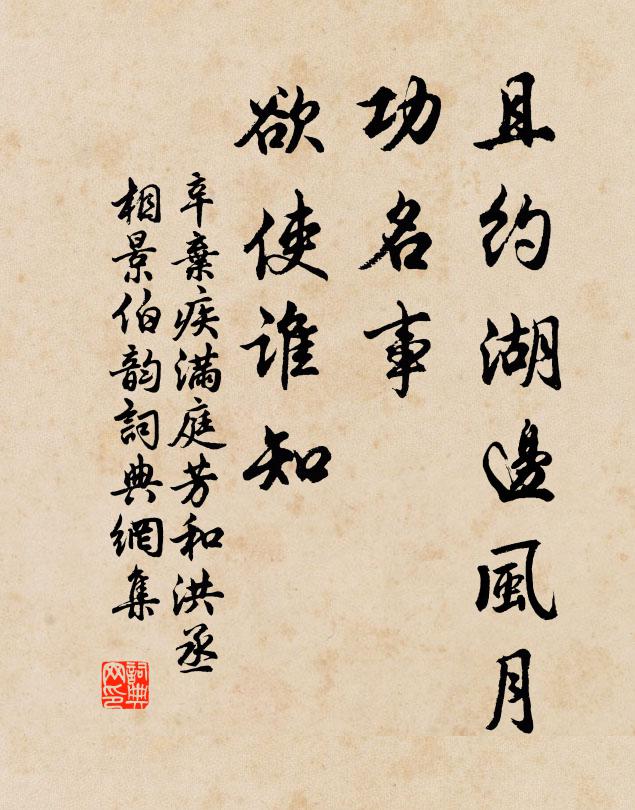 且約湖邊風月
功名事
欲使誰知
辛棄疾滿庭芳和洪丞
相景伯韵詞典網集
詞典
网印